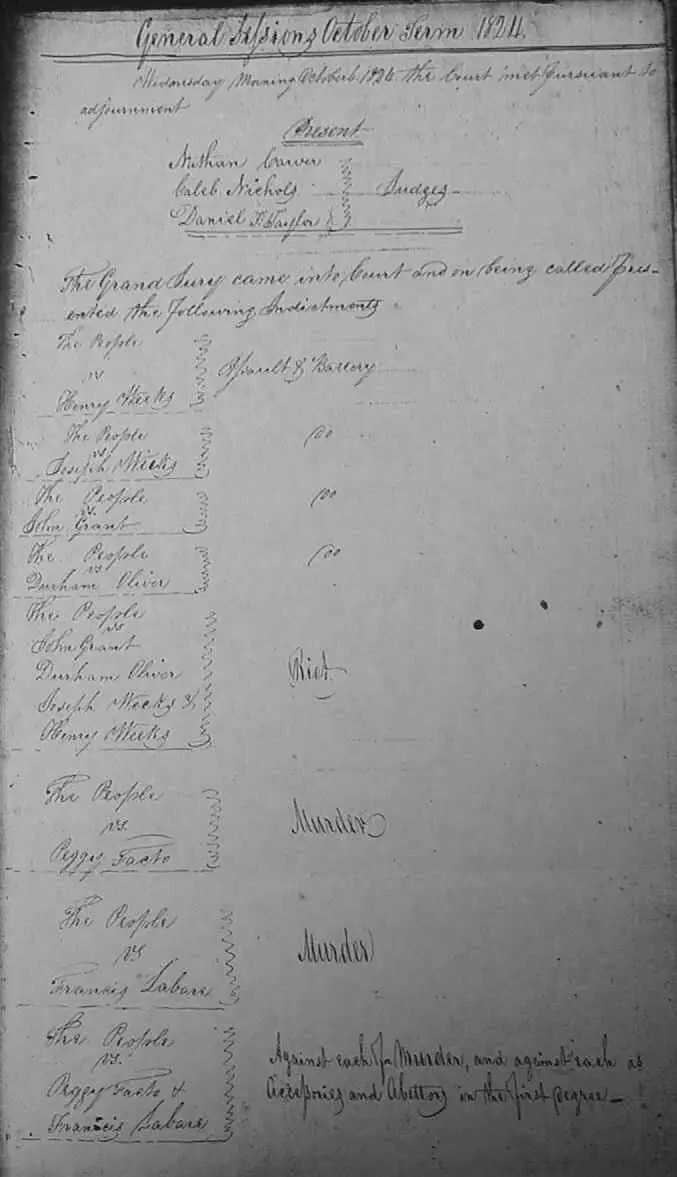 General Sessions October Term 1824.
Wednesday Morning October 6. 1824. the Court met pursuant to
adjournment
Present
Nathan Carver
Caleb Nichols Judges
Daniel T. Taylor
The Grand Jury came into Court and on being called Pres-
ented the following Indictments
The People
vs
Henry Weeks
Assault & Battery
The People
vs
Joseph Weeks
Do
The People
vs
John Grant
Do
The People
vs
Durham Oliver
Do
The People
vs
John Grant
Durham Oliver
Joseph Weeks &
Henry Weeks
Riot
The People
vs.
Peggy Facto
Murder
The People
vs
Francis Labare
Murder
The People
vs.
Peggy Facto &
Francis Labare
Against each for Murder, and against each as
Accessories and Abettors in the first Degree